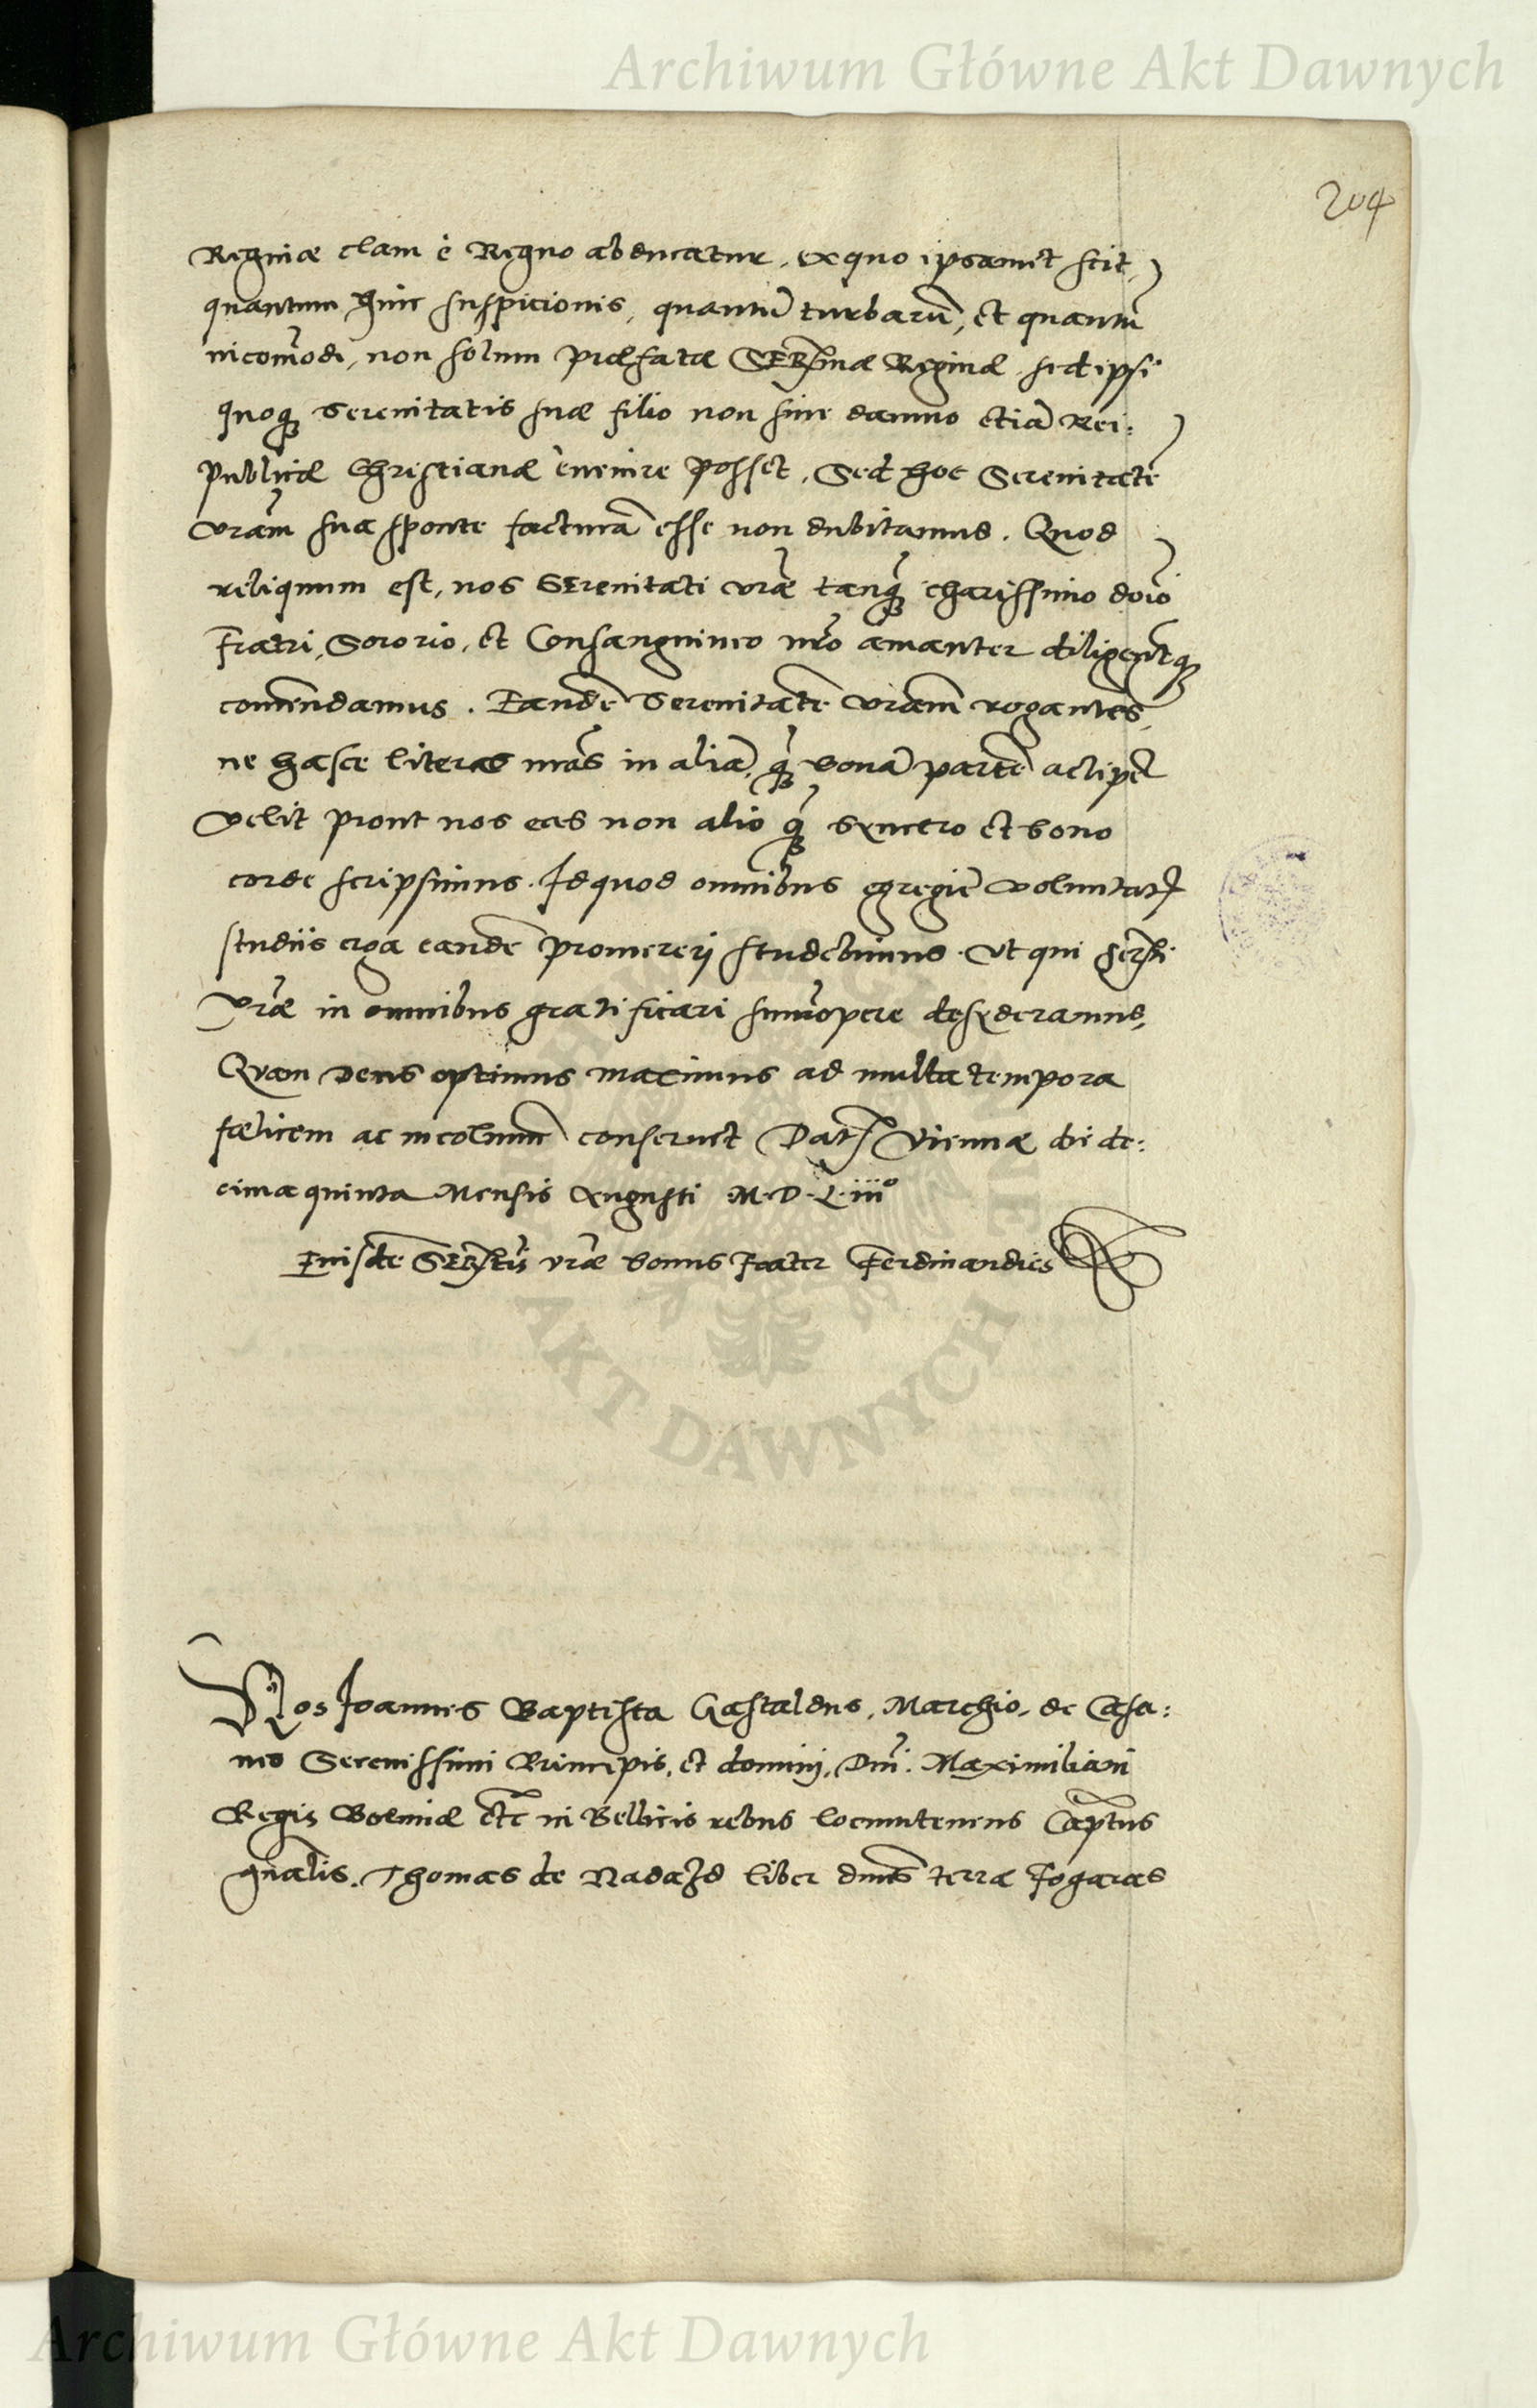 Archiwum Główne Akt Dawnych
204
Reginæ clam è Regno abducatur, ex quo ipsamet scit,
quantum hinc suspicionis, quantũ turbarũ, et quantũ
incom̃odi, non solum præfatæ SERmæ Reginæ, sed ipsi
quoq; Serenitatis suæ filio non sine damno etiã Rei:
publicæ Christianæ euenire posset, Sed hoc Serenitatẽ
vrãm sua sponte facturã esse non dubitamus. Quod
reliquum est, nos SErenitati vræ̃ tanq̃ charissimo dom̃o
Fratri, Sororio, et Consanguineo nr̃o amanter diligenterq;
com̃endamus. Eandẽ Serenitatẽ vrãm rogantes,
ne hasce literas nrãs in aliã, q̃ bonã partẽ accipere
velit prout nos eas non alio q̃ syncero et bono
corde scripsimus. Id quod omnibus egregiẽ voluntatis
studiis erga eandẽ promererj studebimus. Ut qui Serti
Vræ̃ in omnibus gratificari sum̃opere desyderamus,
Quam Deus optimus maximus ad multa tempora
fœlicem ac incolumẽ conseruet Dat Viennæ die de:
cima quinta Mensis Augusti M.D.L.iiio
Eiusdẽ SERtis vræ̃ bonus Frater Ferdinandus
AKT DAWNYCH
Nos Joannes Baptista Gastaldus, Marchio, de Cassa:
no Serenissimi Principis, et dominj, Dnĩ. Maximiliani
Regis Boemiæ etc̃ in Bellicis rebus locumtenens Captñus
gnãlis. Thomas de Nadazd liber dnũs terræ Fogaras
Archiwum Główne Akt Dawnych